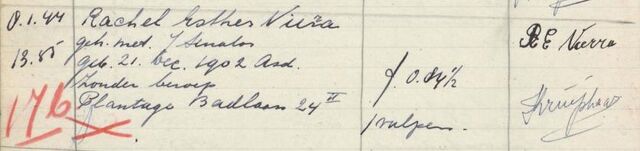 8.1.44 Rachel Esther Vieira R E Vieira
geh. met. J Senator
13.55 geb. 21. Dec. 1902 Asd.
zonder beroep f. 0.84½
176 Plantage Badlaan 24 II
1 vulpen.